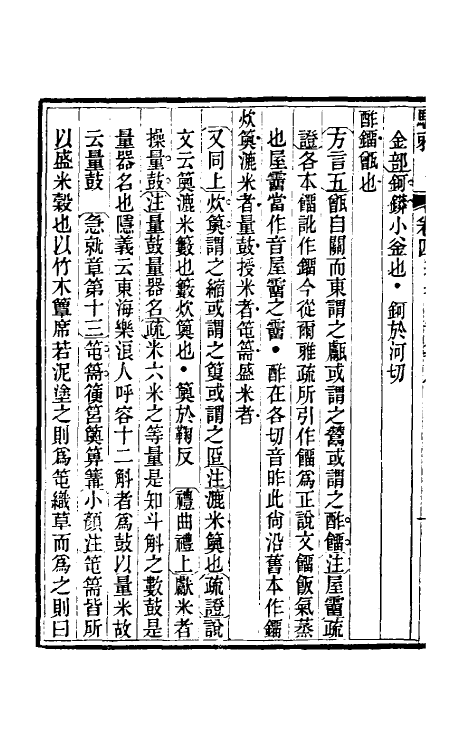 金部鈳䥈小釜也・鈳於河切
酢鎦甑也
方言五甑自關而東謂之甗或謂之鬵或謂之酢餾注屋霤疏
證各本餾訛作鎦今從爾雅疏所引作餾爲正說文餾飯氣蒸
也屋霤當作音屋霤之霤・酢在各切音昨此尙沿舊本作鎦
炊䉛漉米者量鼓授米者笔篅盛米者
又同上炊䉛謂之縮或謂之䈹或謂之匠注漉米䉛也疏證說
文云䉛漉米籔也籔炊䉛也・䉛於鞠反　禮曲禮上獻米者
操量鼓注量鼓量器名疏米六米之等量是知斗斛之數鼓是
量器名也隱義云東海樂浪人呼容十二斛者爲鼓以量米故
云量鼓　急就章第十三笔篅篋筥䉛箅篝小顏注笔篅皆所
以盛米穀也以竹木簟席若泥塗之則爲笔織草而爲之則曰